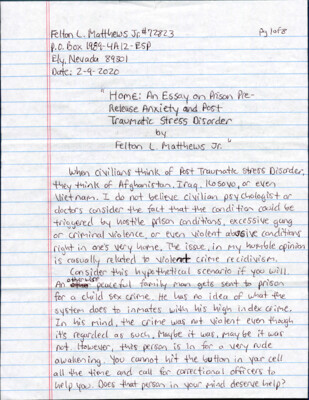 Felton L. Matthews Jr. #72823
Pg 1 of 8
P.O. Box 1989-4A12-ESP
Ely, Nevada 89301
Date: 2-9-2020
"Home: An Essay on Prison Pre-
Release Anxiety and Post
Traumatic Stress Disorder
by
Felton L. Matthews Jr."
When civilians think of Post Traumatic Stress Disorder,
they think of Afghanistan, Iraq, Kosovo, or even
Vietnam. I do not believe civilian psychologist or
doctors consider the fact that the condition could be
triggered by hostile prison conditions, excessive gang
or criminal violence, or even violent abusive conditions
right in one's very home. The issue, in my humble opinion
is casually related to violent crime recidivism.
Consider this hypothetical scenario if you will.
An otherwise peaceful family man gets sent to prison
for a child sex crime. He has no idea of what the
system does to inmates with his high index crime.
In his mind, the crime was not violent even though
it's regarded as such. Maybe it was, maybe it was
not. However, this person is in for a very rude
awakening. You cannot hit the button in your cell
all the time and call for correctional officers to
help you. Does that person in your mind deserve help?